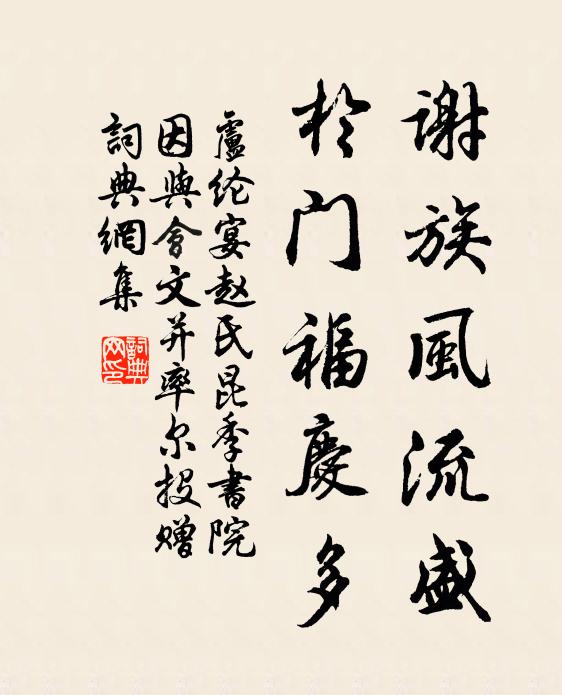 谢族風流盛
於门福慶多
盧纶宴赵氏昆季書院
因與會文并率尔投赠
詞典網集
詞典網印